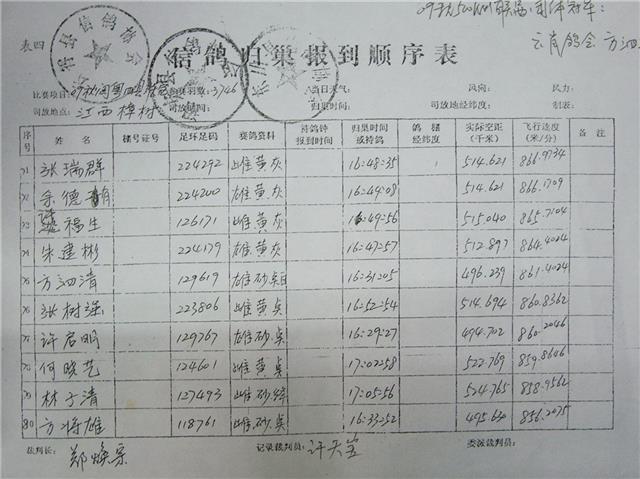 09秋500km联赛团体冠军:
云霄鸽会 方泗
表四
信鸽归巢报到顺序表
比赛项目: 羽数: 3746 当日天气: 风向: 风力:
司放地点: 江西樟树 司放时间: 归巢时间: 司放地经纬度: 制表:
序号 姓名 棚号证号 足环足码 赛鸽资料 待鸽钟报到时间 归巢时间或待鸽 鸽棚经纬度 实际空距(千米) 飞行速度(米/分) 备注
71 张瑞群 224292 雌黄灰 16:48:35 514.621 866.9734
余德 224200 雄黄灰 16:49:08 514.621 866.1709
福生 126171 雌黄灰 16:49:56 515.040 865.7104
74 朱建彬 224179 雄黄灰 16:47:57 512.897 864.4024
75 方泗清 129619 雄砂 16:31:05 496.239 861.4024
76 张树强 223806 雌黄贞 16:52:54 514.694 860.8362
许启明 129767 雄砂贞 16:29:27 494.702 860.2046
何晓艺 124601 雌黄贞 17:02:58 522.769 859.8646
79 林于清 127493 雌砂 17:05:56 524.765 858.9562
80 方将雄 118761 雌砂贞 16:33:52 495.630 856.2075
裁判长: 郑焕宗 记录裁判员: 许天宝 委派裁判员: